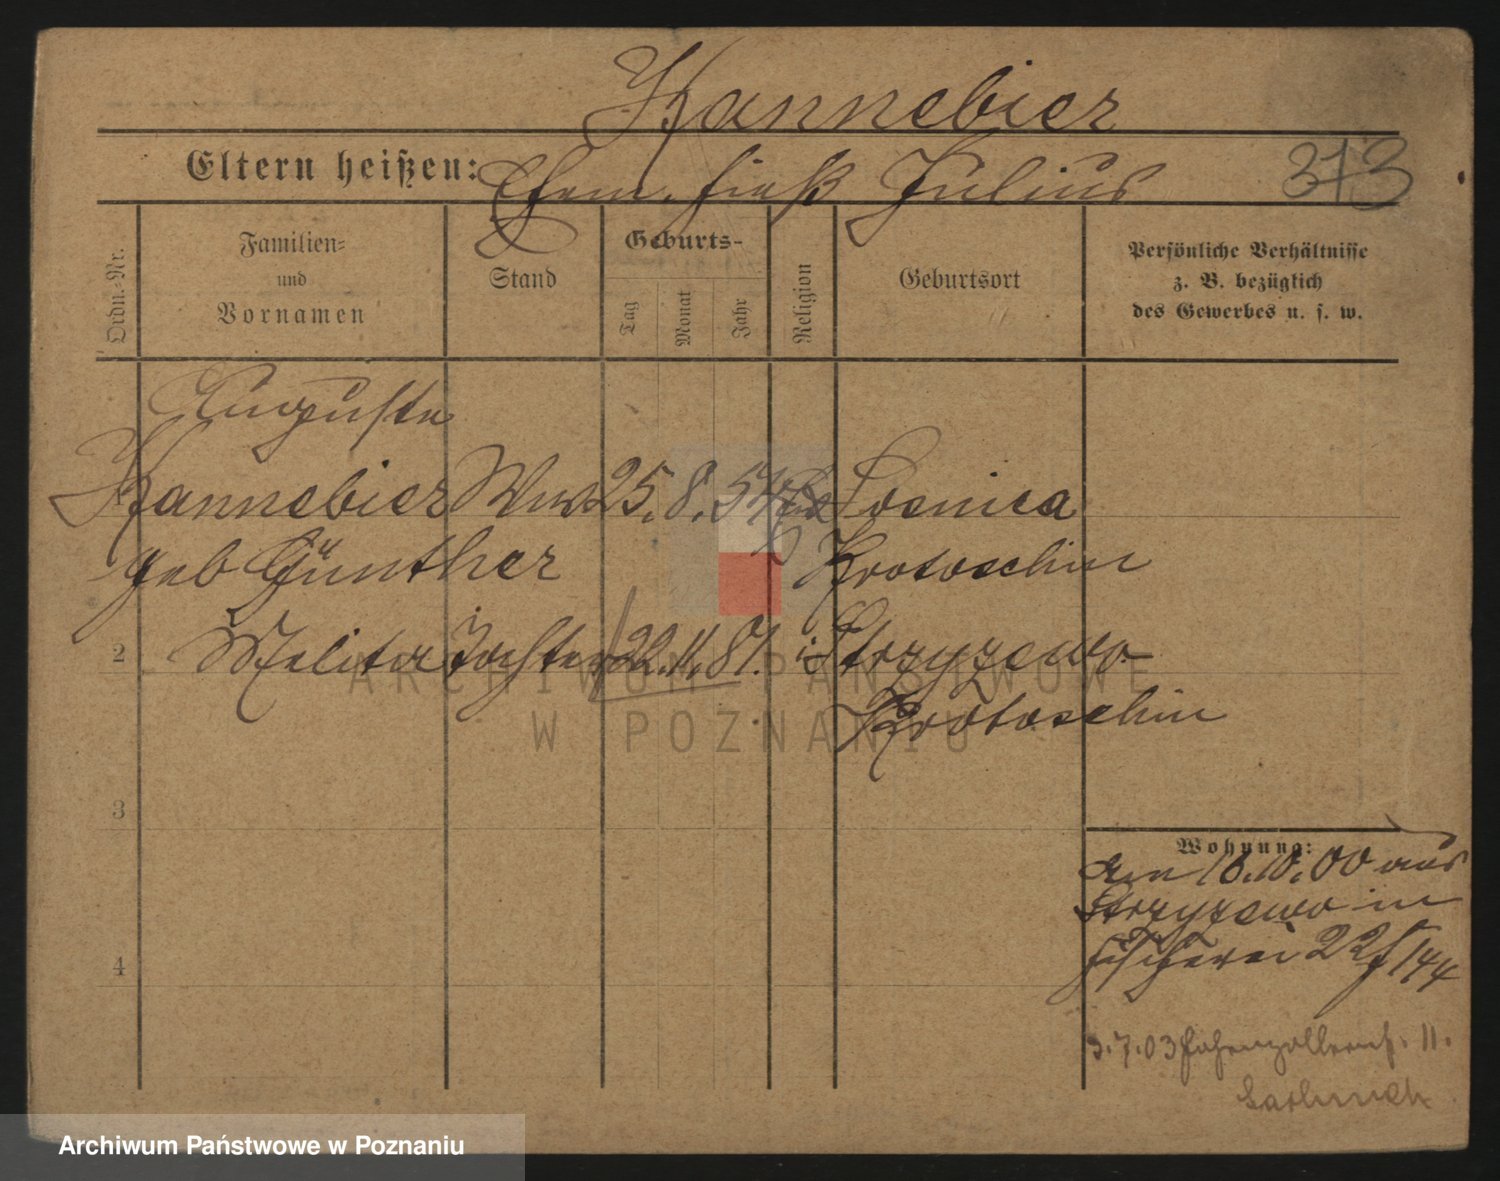 Kannebier
Eltern heißen: Ehem. hieß Julius 313
Ordn.-Nr.
Familien-
und
Vornamen
Stand
Geburts-
Tag
Monat
Jahr
Religion
Geburtsort
Persönliche Verhältnisse
z. B. bezüglich
des Gewerbes u. s. w.
Auguste
Kannebier Wwe 25. 8. 54
geb Günther Krotoschin
2 Melita Tochter 22. 11. 81. Strzyzewo
Krotoschin
3
4
Wohnung:
am 18.10.00 aus
Strzyzewo in
Fischerei 22 f/144
3.7.03 Hohenzollernst. 11.
ARCHIWUM PAŃSTWOWE
W POZNANIU
Archiwum Państwowe w Poznaniu